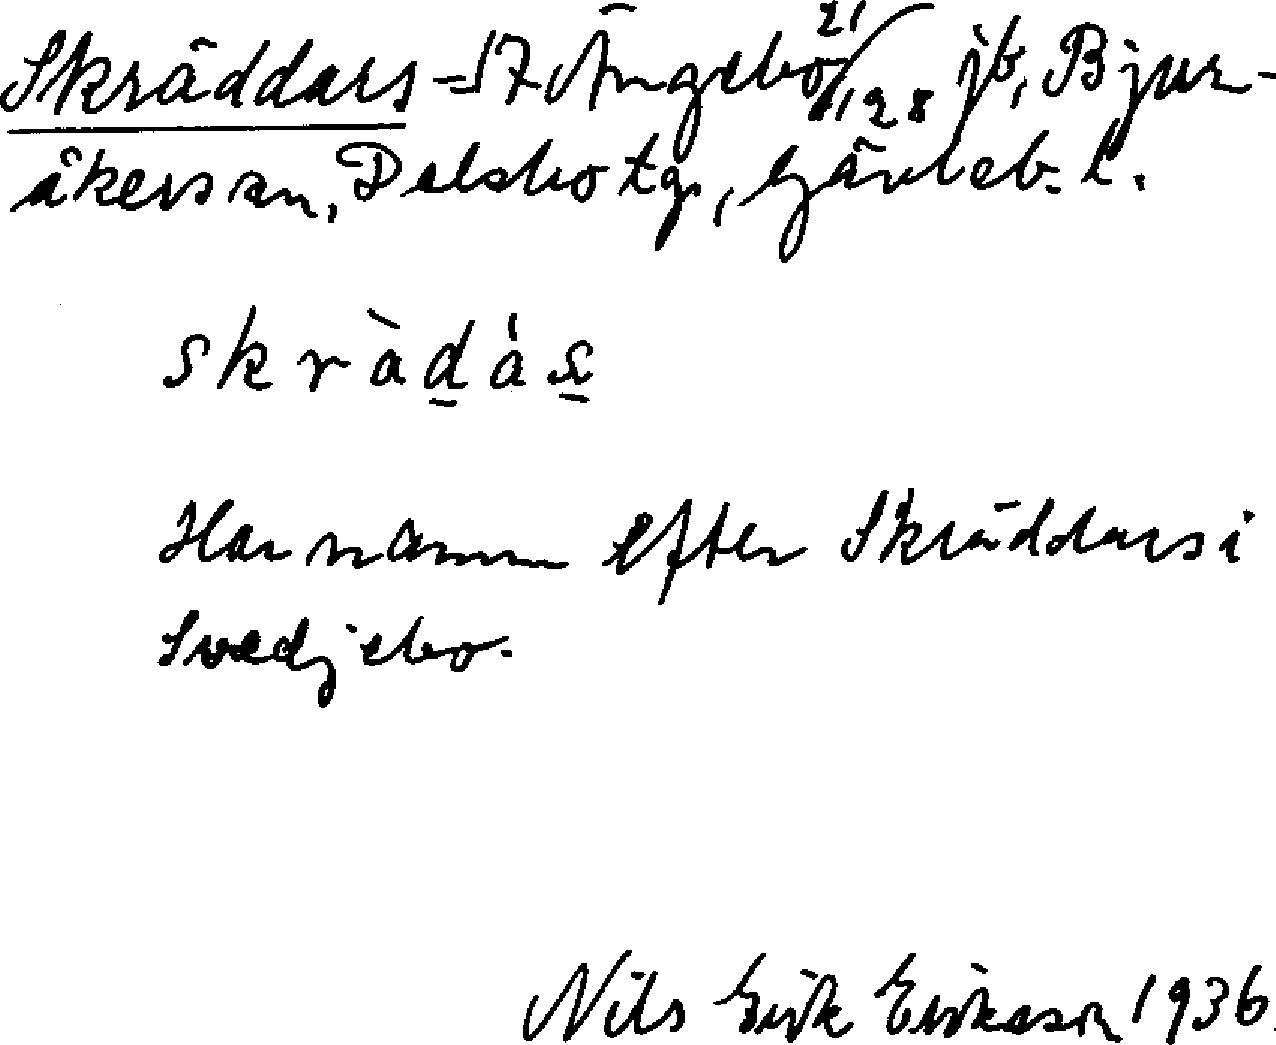 Skräddars =17 Ängebo 21/128 jb, Bjur-
åkers sn, Delsbo tg, Gävleb. l.
skràd̲ás̲
Har namn efter Skräddars i
Svedjebo.
Nils Erik Eriksson 1936.